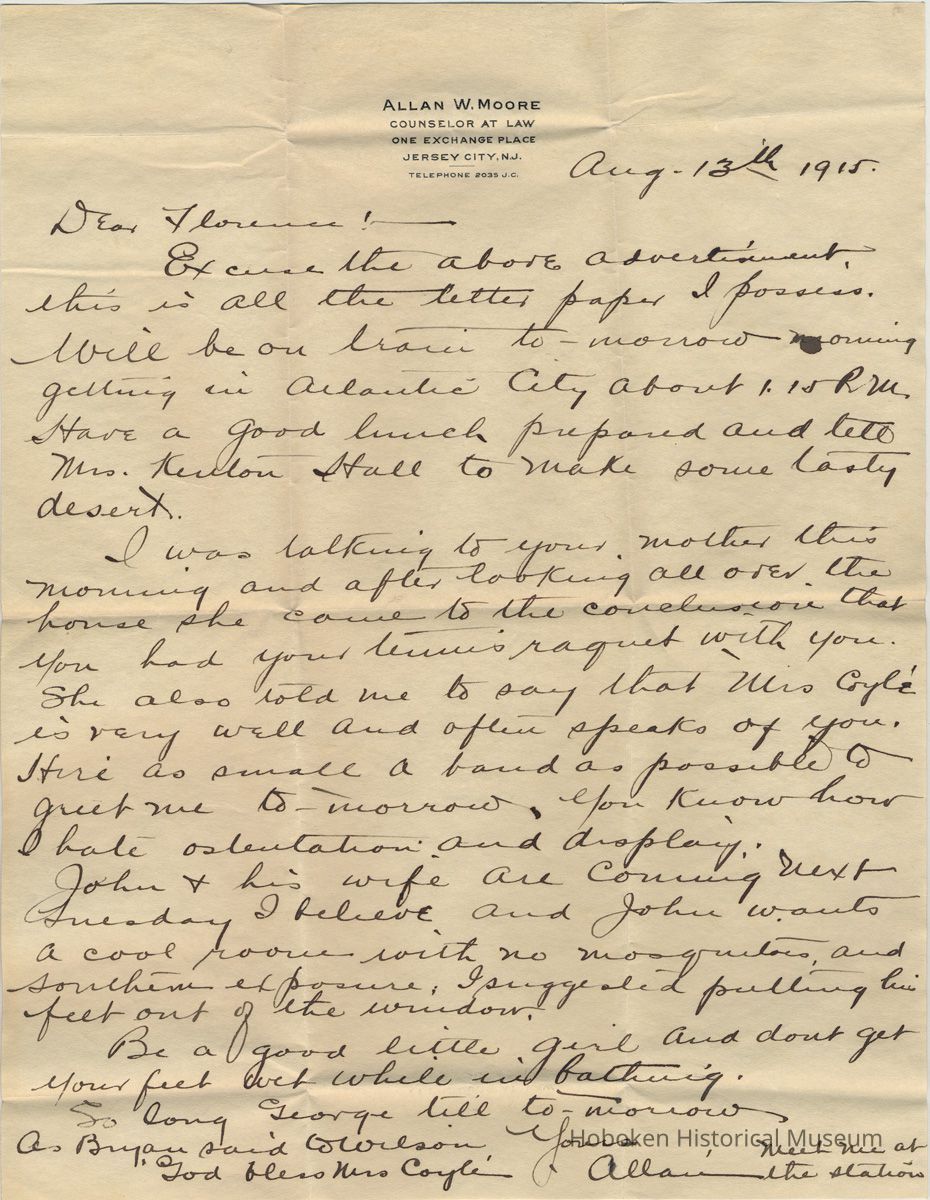 ALLAN W. MOORE
COUNSELOR AT LAW
ONE EXCHANGE PLACE
JERSEY CITY, N.J.
TELEPHONE 2035 J.C.
Aug. 13th 1915.
Dear Florence!—
Excuse the above advertisment,
this is all the letter paper I possess.
Will be on train to-morrow morning
getting in Atlantic City about 1.15 P.M.
Have a good lunch prepared and tell
Mrs. Kenton Hall to make some tasty
desert.
I was talking to your mother this
morning and after looking all over the
house she came to the conclusion that
you had your tennis raquet with you.
She also told me to say that Mrs Coyle
is very well and often speaks of you.
Hire as small a band as possible to
greet me to-morrow, you know how
I hate ostentation and display.
John & his wife are coming next
Tuesday I believe and John wants
a cool room with no mosquitos, and
southern exposure; I suggested putting his
feet out of the window.
Be a good little girl and dont get
your feet wet while in bathing.
So long George till to-morrow
As Bryan said to Wilson
"God bless Mrs Coyle"
Yours
Allan
Meet me at
the station
Hoboken Historical Museum